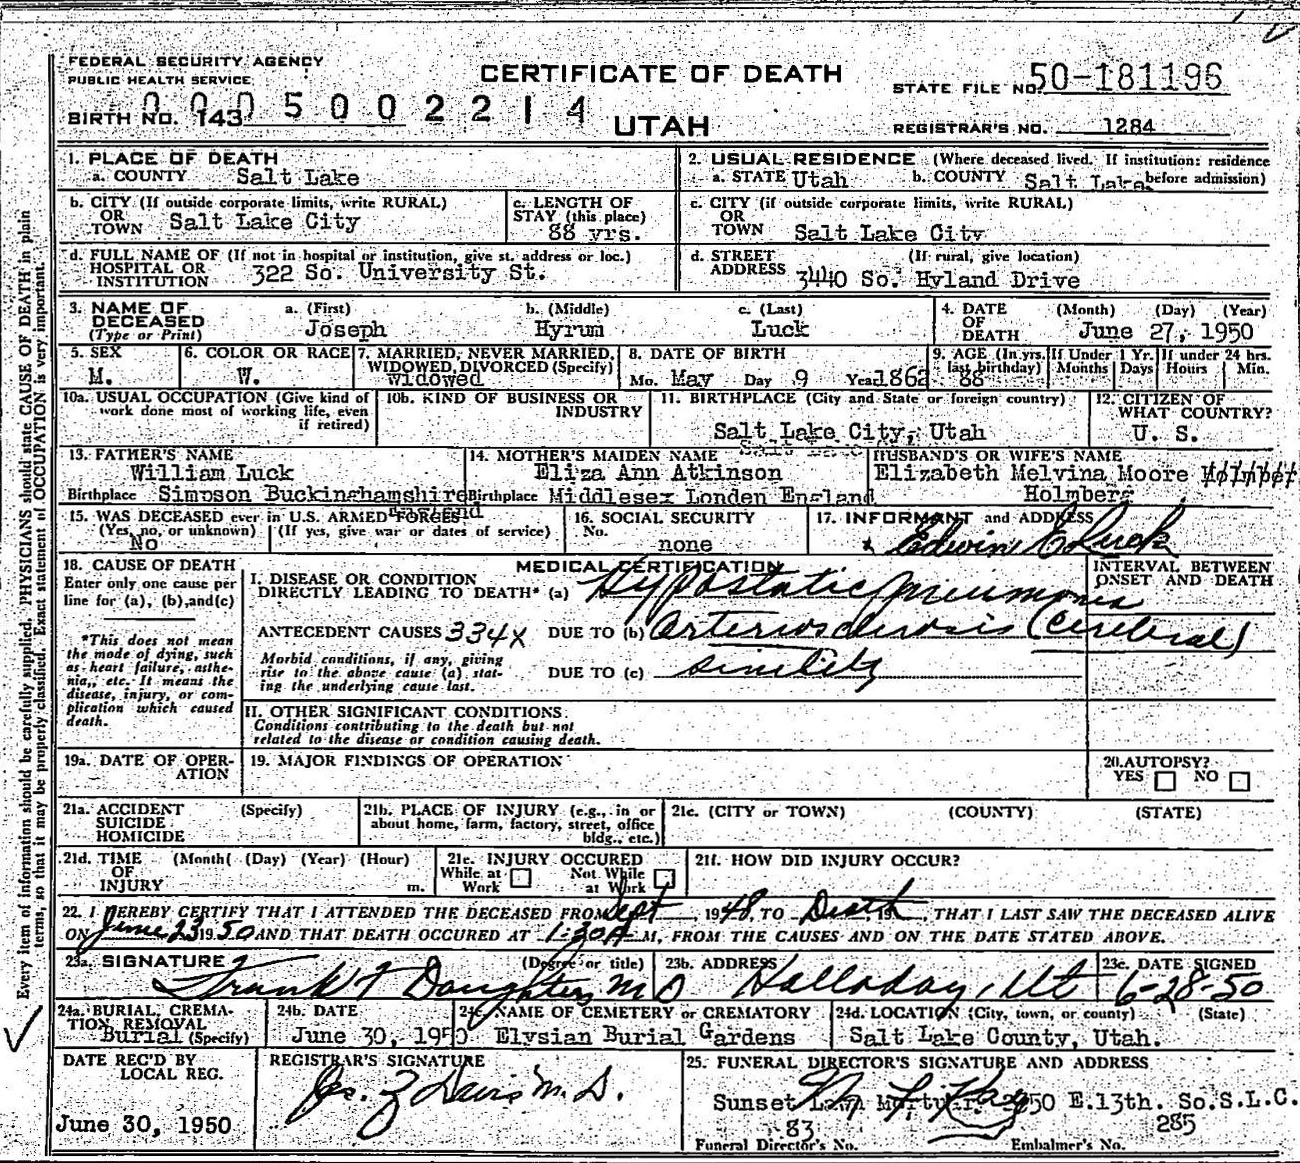 FEDERAL SECURITY AGENCY
PUBLIC HEALTH SERVICE
CERTIFICATE OF DEATH
UTAH
STATE FILE NO. 50-181196
BIRTH NO. 143 0005002214
REGISTRAR'S NO. 1284
1. PLACE OF DEATH
a. COUNTY Salt Lake
2. USUAL RESIDENCE (Where deceased lived. If institution: residence before admission)
a. STATE Utah b. COUNTY Salt Lake
b. CITY (If outside corporate limits, write RURAL) OR TOWN Salt Lake City
c. LENGTH OF STAY (this place) 88 yrs.
c. CITY (if outside corporate limits, write RURAL) OR TOWN Salt Lake City
d. FULL NAME OF (If not in hospital or institution, give st. address or loc.) HOSPITAL OR INSTITUTION 322 So. University St.
d. STREET ADDRESS (If rural, give location) 3440 So. Hyland Drive
3. NAME OF DECEASED (Type or Print)
a. (First) Joseph b. (Middle) Hyrum c. (Last) Luck
4. DATE OF DEATH (Month) (Day) (Year) June 27, 1950
5. SEX M.
6. COLOR OR RACE W.
7. MARRIED, NEVER MARRIED, WIDOWED, DIVORCED (Specify) Widowed
8. DATE OF BIRTH Mo. May Day 9 Year 1862
9. AGE (In yrs. last birthday) 88
If Under 1 Yr. Months Days
If under 24 hrs. Hours Min.
10a. USUAL OCCUPATION (Give kind of work done most of working life, even if retired)
10b. KIND OF BUSINESS OR INDUSTRY
11. BIRTHPLACE (City and State or foreign country) Salt Lake City, Utah
12. CITIZEN OF WHAT COUNTRY? U. S.
13. FATHER'S NAME William Luck
Birthplace Simpson Buckinghamshire England
14. MOTHER'S MAIDEN NAME Eliza Ann Atkinson
Birthplace Middlesex Londen England
HUSBAND'S OR WIFE'S NAME
Elizabeth Melvina Moore
Holmberg
15. WAS DECEASED ever in U.S. ARMED FORCES?
(Yes, no, or unknown) (If yes, give war or dates of service)
No
16. SOCIAL SECURITY No. none
17. INFORMANT and ADDRESS
x Edwin C Luck
18. CAUSE OF DEATH
Enter only one cause per line for (a), (b), and (c)
*This does not mean the mode of dying, such as heart failure, asthenia, etc. It means the disease, injury, or complication which caused death.
MEDICAL CERTIFICATION
INTERVAL BETWEEN ONSET AND DEATH
I. DISEASE OR CONDITION DIRECTLY LEADING TO DEATH* (a) Hypostatic pneumonia
ANTECEDENT CAUSES 334X DUE TO (b) Arteriosclerosis (cerebral)
Morbid conditions, if any, giving rise to the above cause (a) stating the underlying cause last.
DUE TO (c)
II. OTHER SIGNIFICANT CONDITIONS
Conditions contributing to the death but not related to the disease or condition causing death.
19a. DATE OF OPERATION
19. MAJOR FINDINGS OF OPERATION
20. AUTOPSY? YES NO
21a. ACCIDENT SUICIDE HOMICIDE (Specify)
21b. PLACE OF INJURY (e.g., in or about home, farm, factory, street, office bldg., etc.)
21c. (CITY or TOWN) (COUNTY) (STATE)
21d. TIME OF INJURY (Month( (Day) (Year) (Hour) m.
21e. INJURY OCCURED While at Work Not While at Work
21f. HOW DID INJURY OCCUR?
22. I HEREBY CERTIFY THAT I ATTENDED THE DECEASED FROM Sept, 1948, TO Death 19, THAT I LAST SAW THE DECEASED ALIVE
ON June 23 1950 AND THAT DEATH OCCURED AT 1:30 A M, FROM THE CAUSES AND ON THE DATE STATED ABOVE.
23a. SIGNATURE (Degree or title) Frank F Daughters MD
23b. ADDRESS Holladay, Ut
23c. DATE SIGNED 6-28-50
24a. BURIAL, CREMATION, REMOVAL (Specify) Burial
24b. DATE June 30, 1950
24c. NAME OF CEMETERY or CREMATORY Elysian Burial Gardens
24d. LOCATION (City, town, or county) (State) Salt Lake County, Utah.
DATE REC'D BY LOCAL REG.
June 30, 1950
REGISTRAR'S SIGNATURE
25. FUNERAL DIRECTOR'S SIGNATURE AND ADDRESS
Sunset Lawn E.13th. So.S.L.C.
83 285
Funeral Director's No. Embalmer's No.
Every item of information should be carefully supplied. PHYSICIANS should state CAUSE OF DEATH in plain
terms, so that it may be properly classified. Exact statement of OCCUPATION is very important.